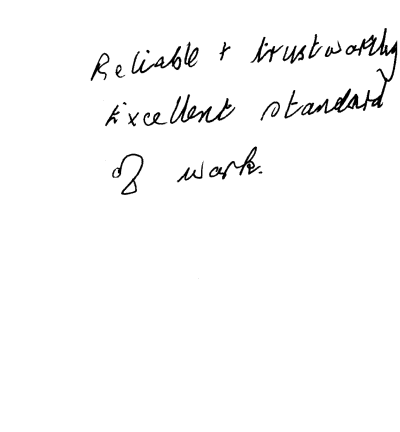 Reliable + trustworthy
Excellent standard
of work.